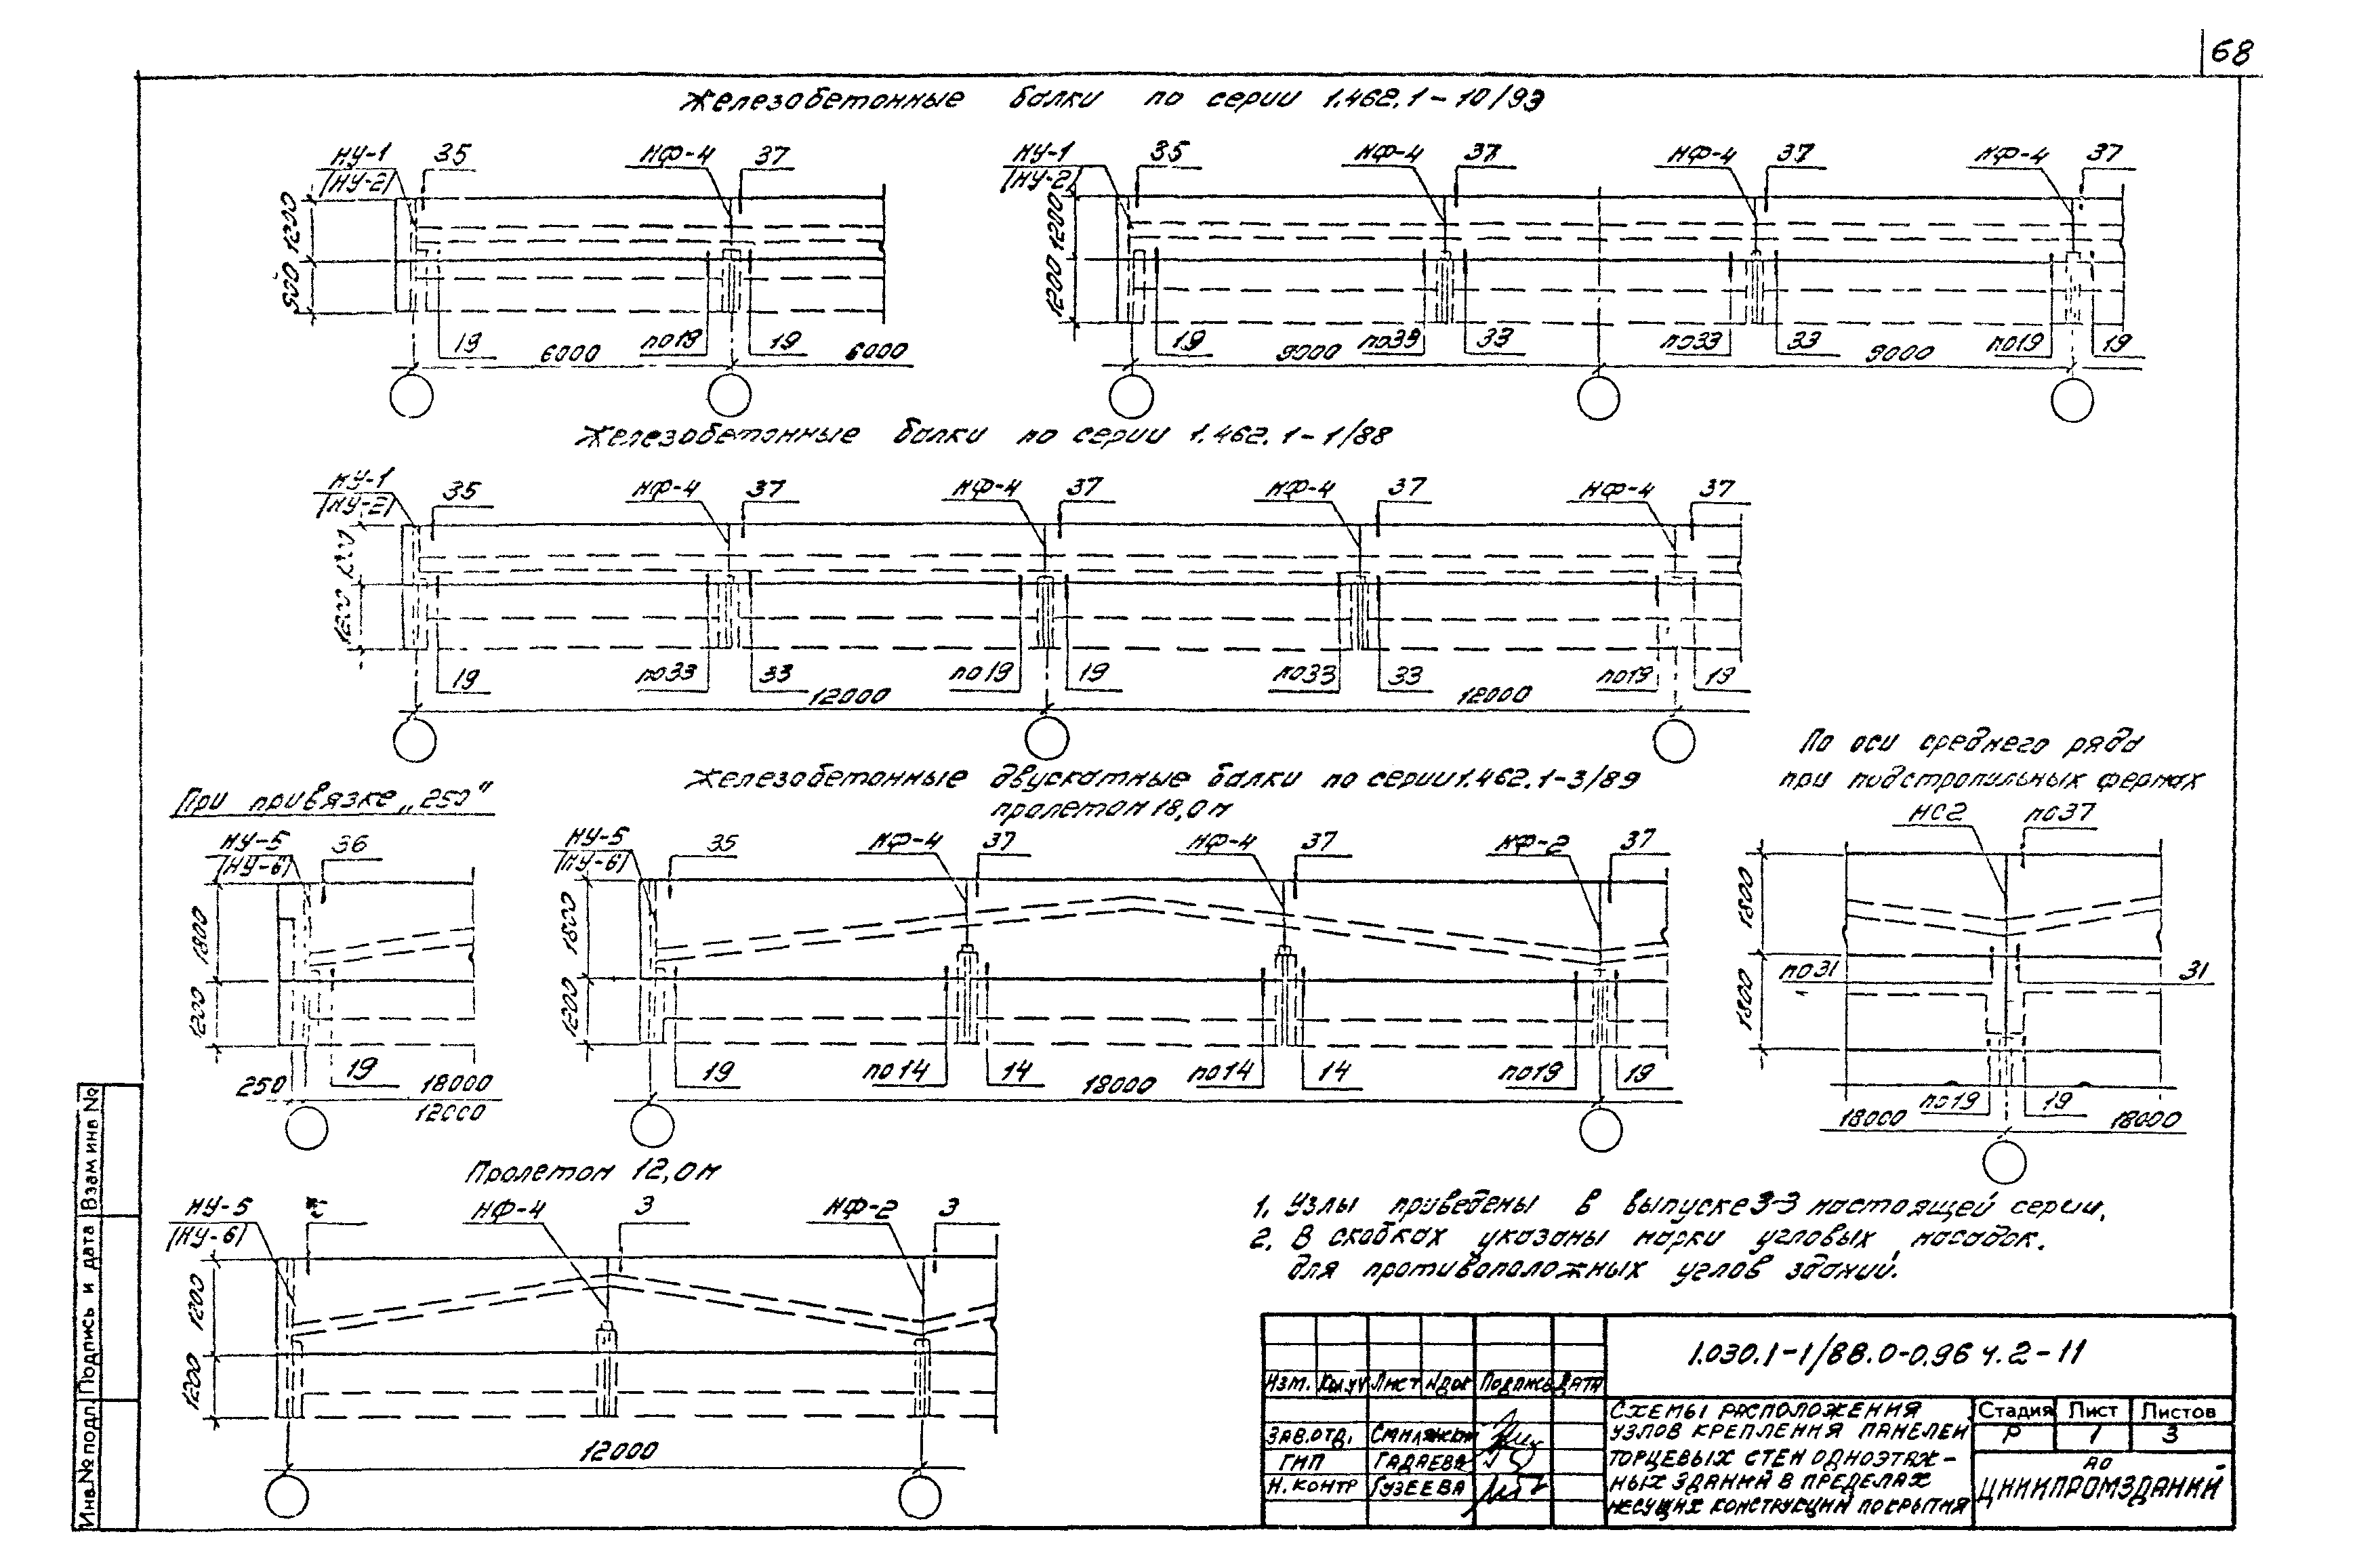 68
Железобетонные балки по серии 1.462.1-10/93
НУ-1 35 НФ-4 37 НУ-1 35 НФ-4 37 НФ-4 37 НФ-4 37
(НУ-2) (НУ-2)
1200 1200
900 1200
19 6000 по19 19 6000 19 9000 по33 33 по33 33 9000 по19 19
Железобетонные балки по серии 1.462.1-1/88
НУ-1 35 НФ-4 37 НФ-4 37 НФ-4 37 НФ-4 37
(НУ-2)
1200
19 по33 33 по19 19 по33 33 по19 19
12000 12000
По оси среднего ряда
при подстропильных фермах
Железобетонные двускатные балки по серии 1.462.1-3/89
пролетом 18,0м
При привязке „250"
НУ-5 36 НУ-5 35 НФ-4 37 НФ-4 37 НФ-2 37 НС2 по37
(НУ-6) (НУ-6)
1800 1800 1800
1200 1200 1800
по31 31
19 19 по14 14 по14 14 по19 19 по19 19
250 18000 18000 18000 18000
12000
Пролетом 12,0м
НУ-5 НФ-4 3 НФ-2 3
(НУ-6)
1200
1200
12000
1. Узлы приведены в выпуске 3-3 настоящей серии.
2. В скобках указаны марки угловых насадок.
для противоположных углов зданий.
1.030.1-1/88.0-0.96 ч.2-11
Изм. Кол.уч Лист Nдок Подпись Дата
Схемы расположения
узлов крепления панелей
торцевых стен одноэтаж-
ных зданий в пределах
несущих конструкций покрытия
Стадия Лист Листов
Р 1 3
Зав.отд.
ГИП Гадаева
Н.контр Гузеева
АО
ЦНИИПРОМЗДАНИЙ
Инв.№ подл. Подпись и дата Взам инв №